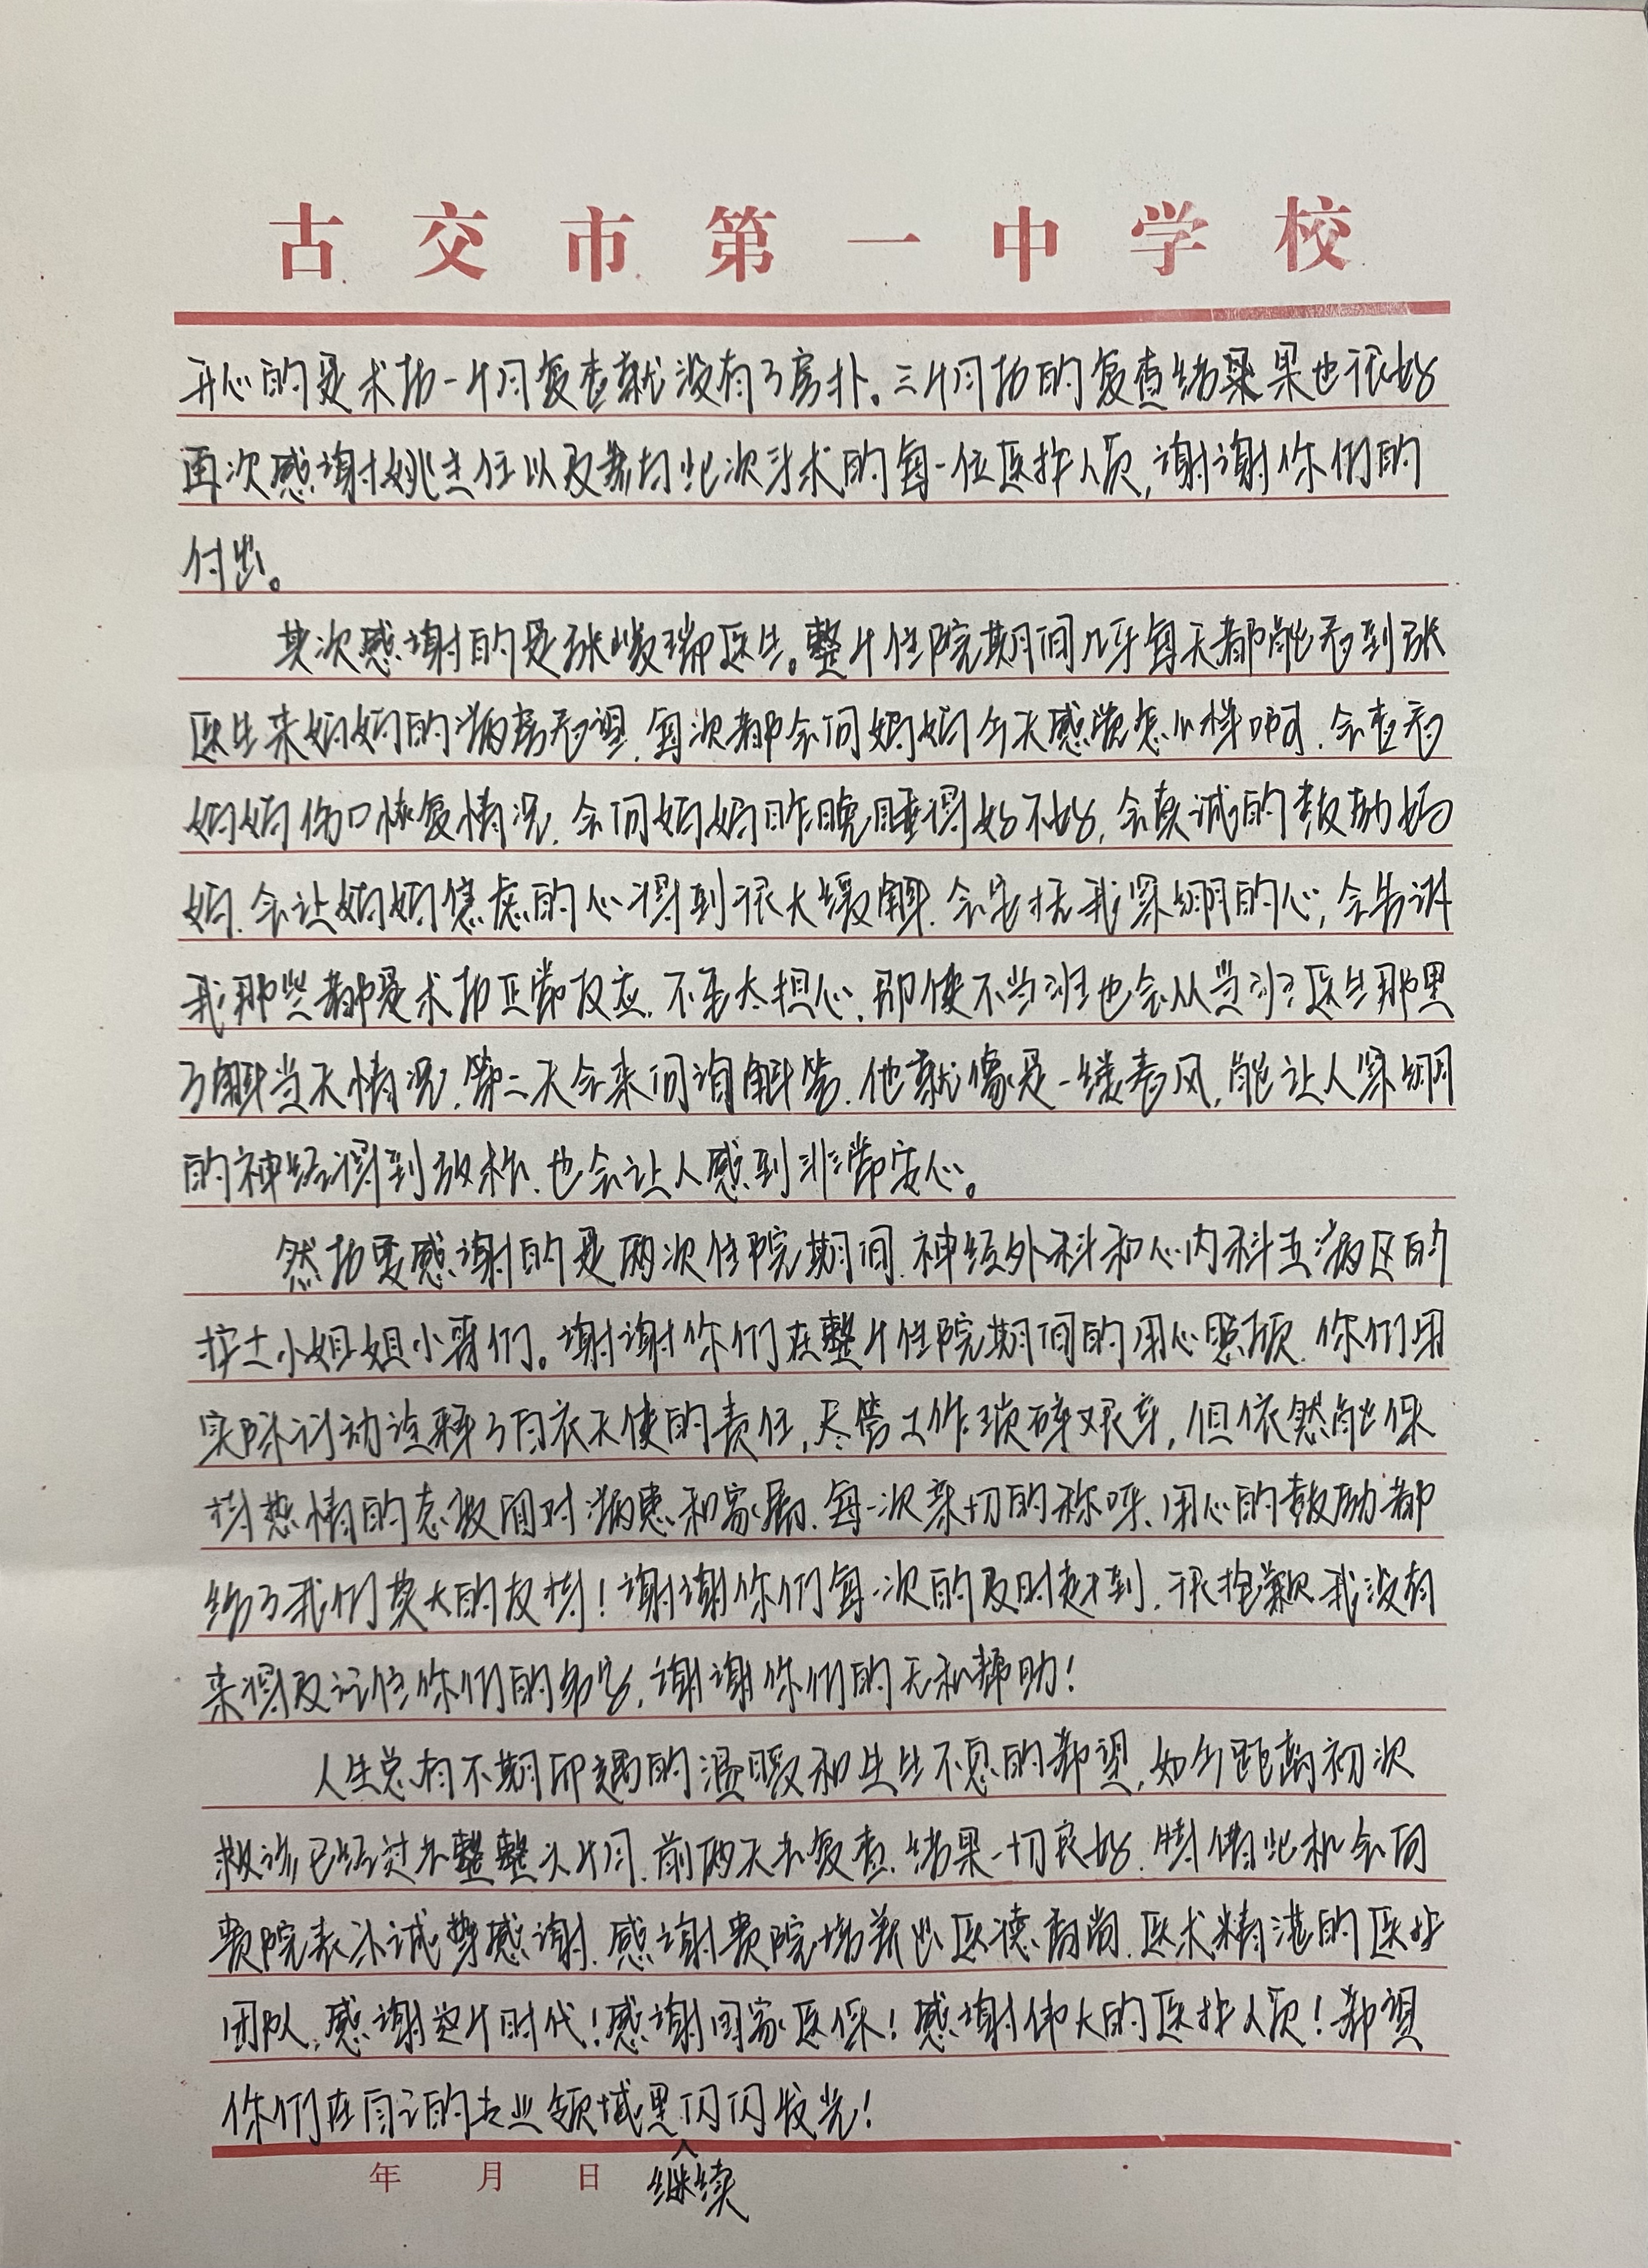 古交市第一中学校
开心的是术后一个月复查就没有了房扑。三个月后的复查结果也很好
再次感谢姚主任以及参与此次手术的每一位医护人员,谢谢你们的
付出。
其次感谢的是张峻瑞医生。整个住院期间几乎每天都能看到张
医生来妈妈的病房看望,每次都会问妈妈今天感觉怎么样啊,会查看
妈妈伤口恢复情况,会问妈妈昨晚睡得好不好,会真诚的鼓励妈
妈,会让妈妈焦虑的心得到很大缓解,会安抚我紧绷的心,会告诉
我那些都是术后正常反应,不要太担心,即使不当班也会从当班医生那里
了解当天情况,第二天会来问询解答,他就像是一缕春风,能让人紧绷
的神经得到放松,也会让人感到非常安心。
然后要感谢的是两次住院期间,神经外科和心内科五病区的
护士小姐姐小哥们。谢谢你们在整个住院期间的用心照顾,你们用
实际行动诠释了白衣天使的责任,尽管工作琐碎艰辛,但依然能保
持热情的态度面对病患和家属,每一次亲切的称呼、用心的鼓励都
给了我们莫大的支持!谢谢你们每一次的及时赶到,很抱歉我没有
来得及记住你们的名字,谢谢你们的无私帮助!
人生总有不期而遇的温暖和生生不息的希望,如今距离初次
救诊已经过去整整六个月,前两天去复查,结果一切良好,特借此机会向
贵院表示诚挚感谢,感谢贵院培养出医德高尚,医术精湛的医护
团队,感谢这个时代!感谢国家医保!感谢伟大的医护人员!希望
你们在自己的专业领域里闪闪发光!
年 月 日 继续